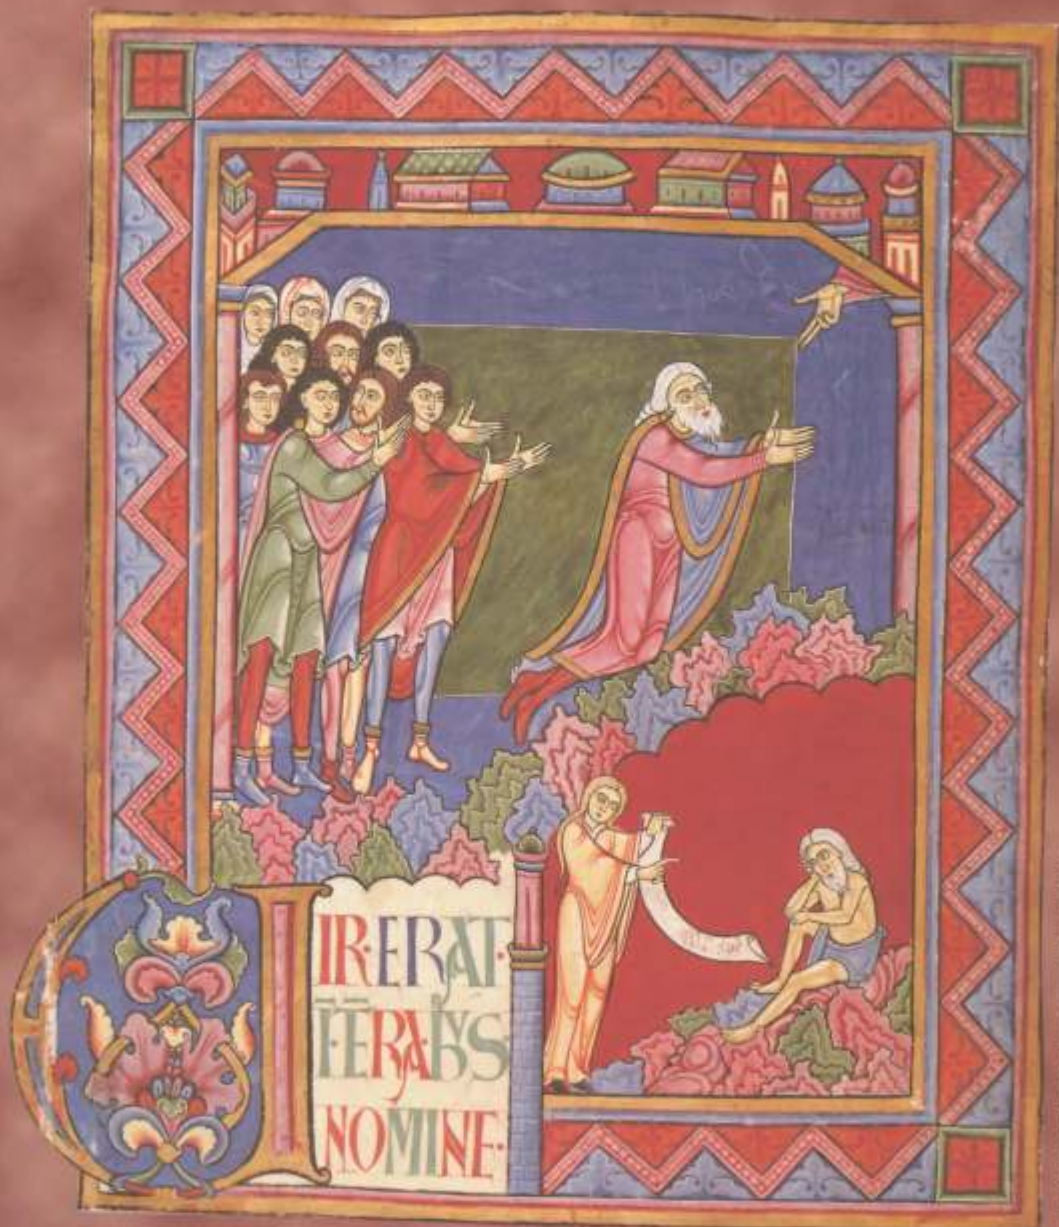 VIR·ERAT·
ĪTE̅RA·hVS
NOMINE·